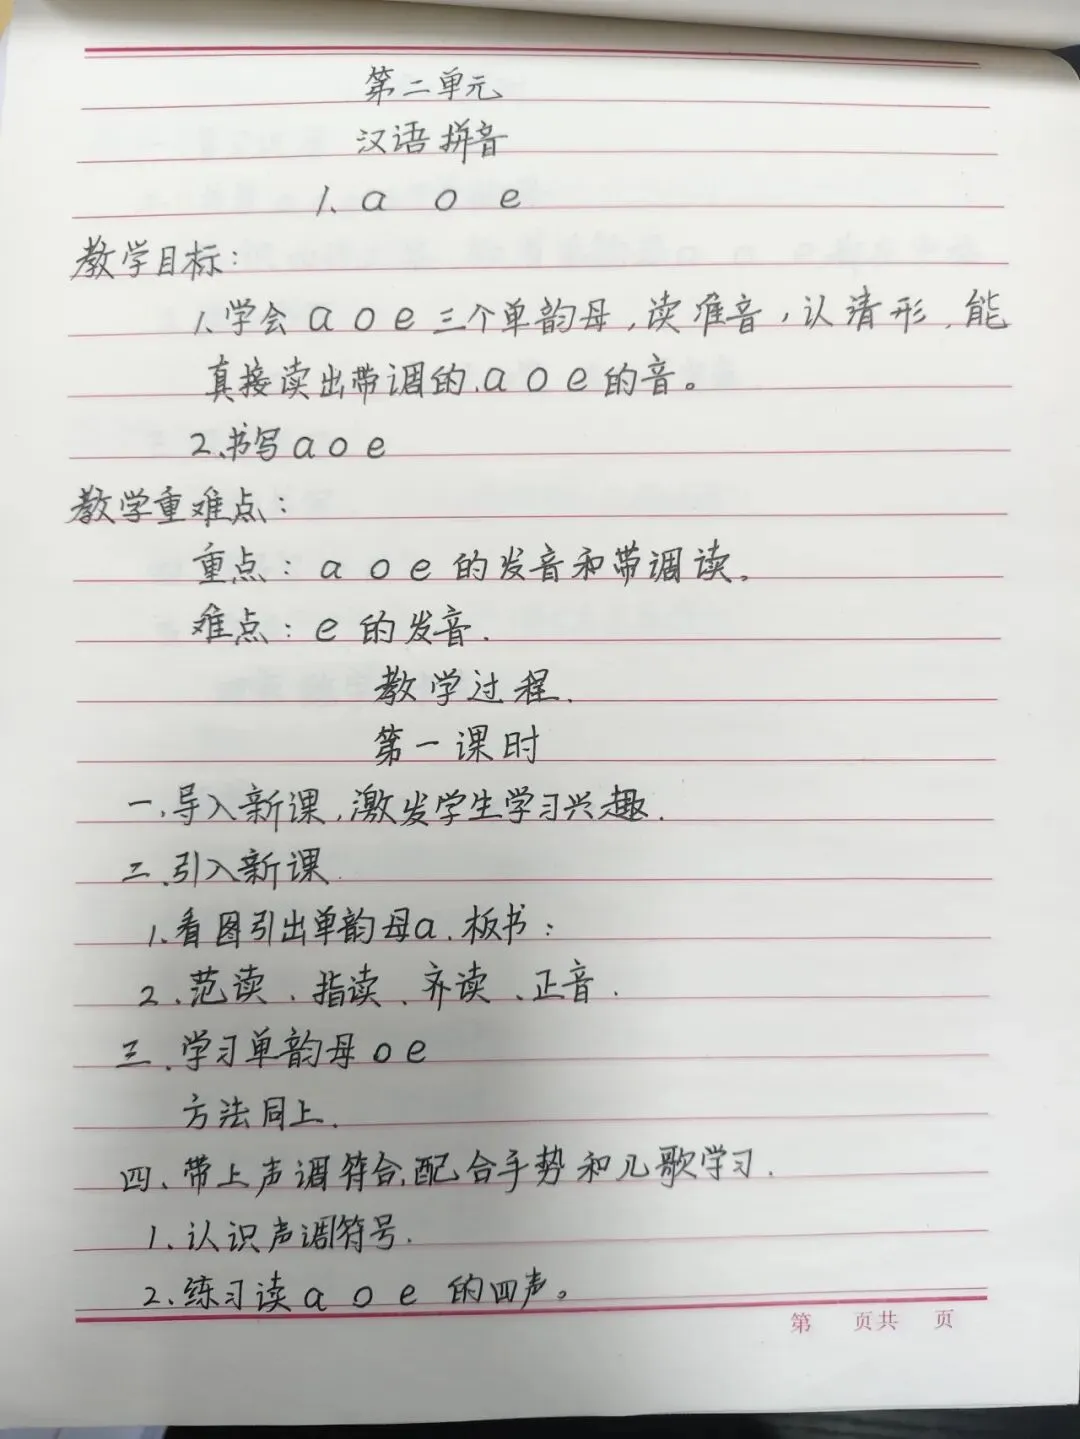 第二单元
汉语拼音
1、a o e
教学目标：
1、学会 a o e 三个单韵母，读准音，认清形，能
直接读出带调的、a o e 的音。
2、书写 a o e
教学重难点：
重点：a o e 的发音和带调读。
难点：e 的发音.
教学过程.
第一课时
一、导入新课，激发学生学习兴趣.
二、引入新课.
1、看图引出单韵母a、板书：
2、范读、指读、齐读、正音.
三、学习单韵母 o e
方法同上.
四、带上声调符合，配合手势和儿歌学习.
1、认识声调符号.
2、练习读 a o e 的四声。
第 页共 页